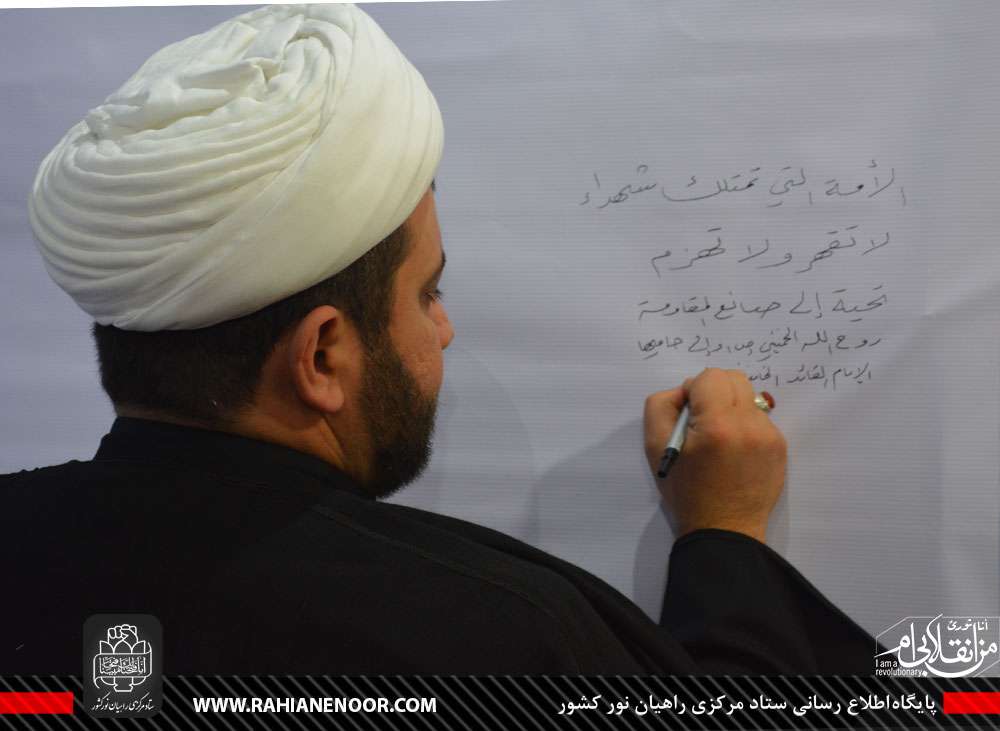 الأمة التي تمتلك شهداء
لا تقهر ولا تهزم
تحية إلى صانع المقاومة
روح الله الخميني وإلى حاميها
الإمام القائد
أنا ثوري
من انقلابی‌ام
I am a
revolutionary
ستاد مرکزی راهیان نور کشور
WWW.RAHIANENOOR.COM
پایگاه اطلاع رسانی ستاد مرکزی راهیان نور کشور